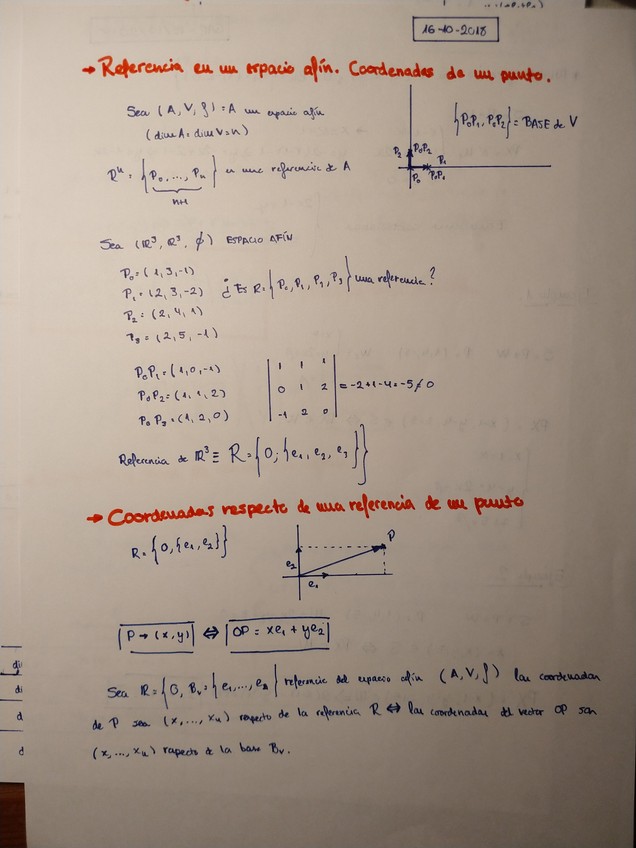 16-10-2018
→ Referencia en un espacio afín. Coordenadas de un punto.
Sea (A, V, ϕ) = A un espacio afín
(dim A = dim V = n)
{P₀P₁, P₀P₂} = BASE de V
P₂ P₀P₂
P₁
P₀ P₀P₁
Rⁿ = {P₀, ..., Pₙ} es una referencia de A
n+1
Sea (ℝ³, ℝ³, ϕ) ESPACIO AFÍN
P₀ = (1, 3, -1)
P₁ = (2, 3, -2) ¿Es R = {P₀, P₁, P₂, P₃} una referencia?
P₂ = (2, 4, 1)
P₃ = (2, 5, -1)
P₀P₁ = (1, 0, -1)
P₀P₂ = (1, 1, 2)
P₀P₃ = (1, 2, 0)
| 1 1 1 |
| 0 1 2 | = -2+1-4 = -5 ≠ 0
| -1 2 0 |
Referencia de ℝ³ ≡ R = {O; {e₁, e₂, e₃}}
→ Coordenadas respecto de una referencia de un punto
R = {O, {e₁, e₂}}
P
e₂
e₁
P → (x, y) ⇔ OP = xe₁ + ye₂
Sea R = {O, Bᵥ = {e₁, ..., eₙ} referencia del espacio afín (A, V, ϕ) las coordenadas
de P sea (x, ..., xₙ) respecto de la referencia R ⇔ las coordenadas del vector OP son
(x, ..., xₙ) respecto de la base Bᵥ.